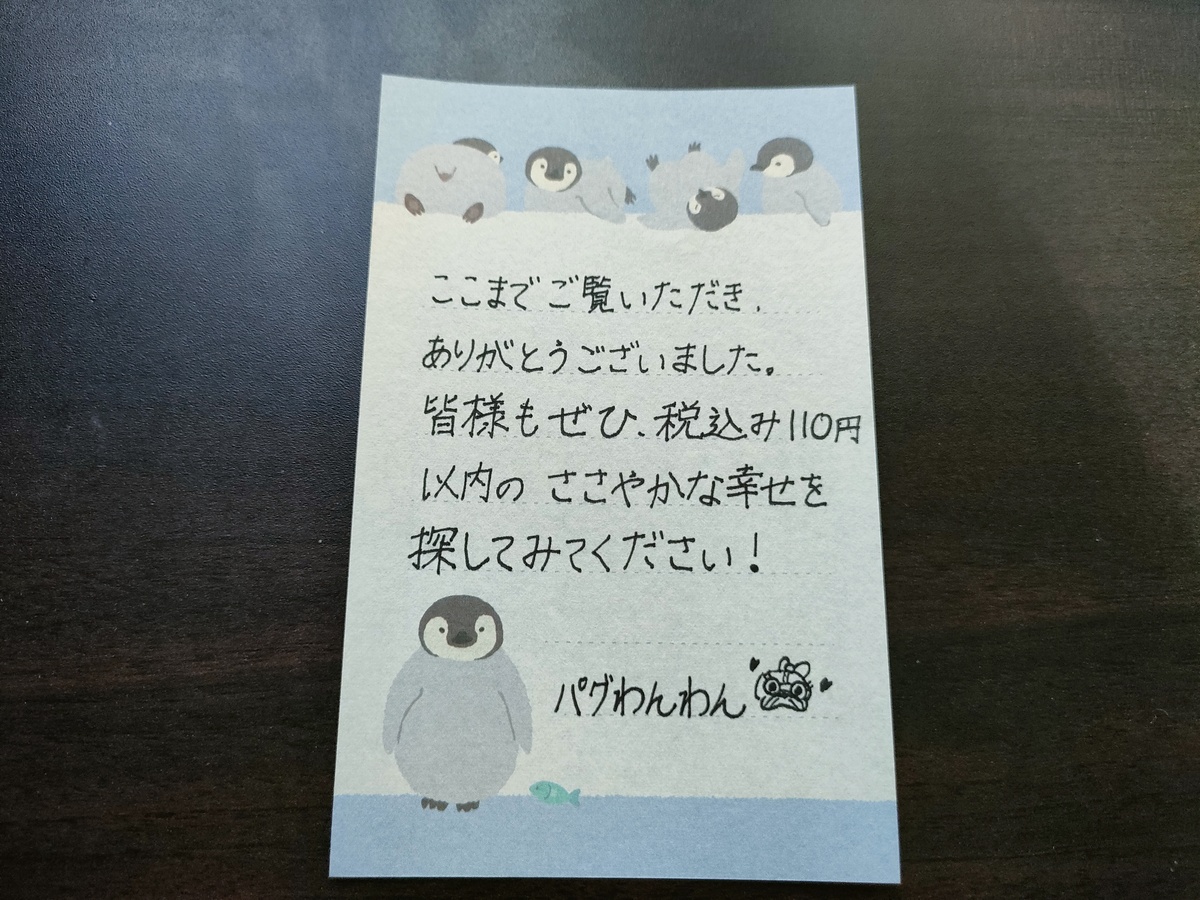 ここまでご覧いただき、
ありがとうございました。
皆様もぜひ、税込み110円
以内のささやかな幸せを
探してみてください!
パグわんわん